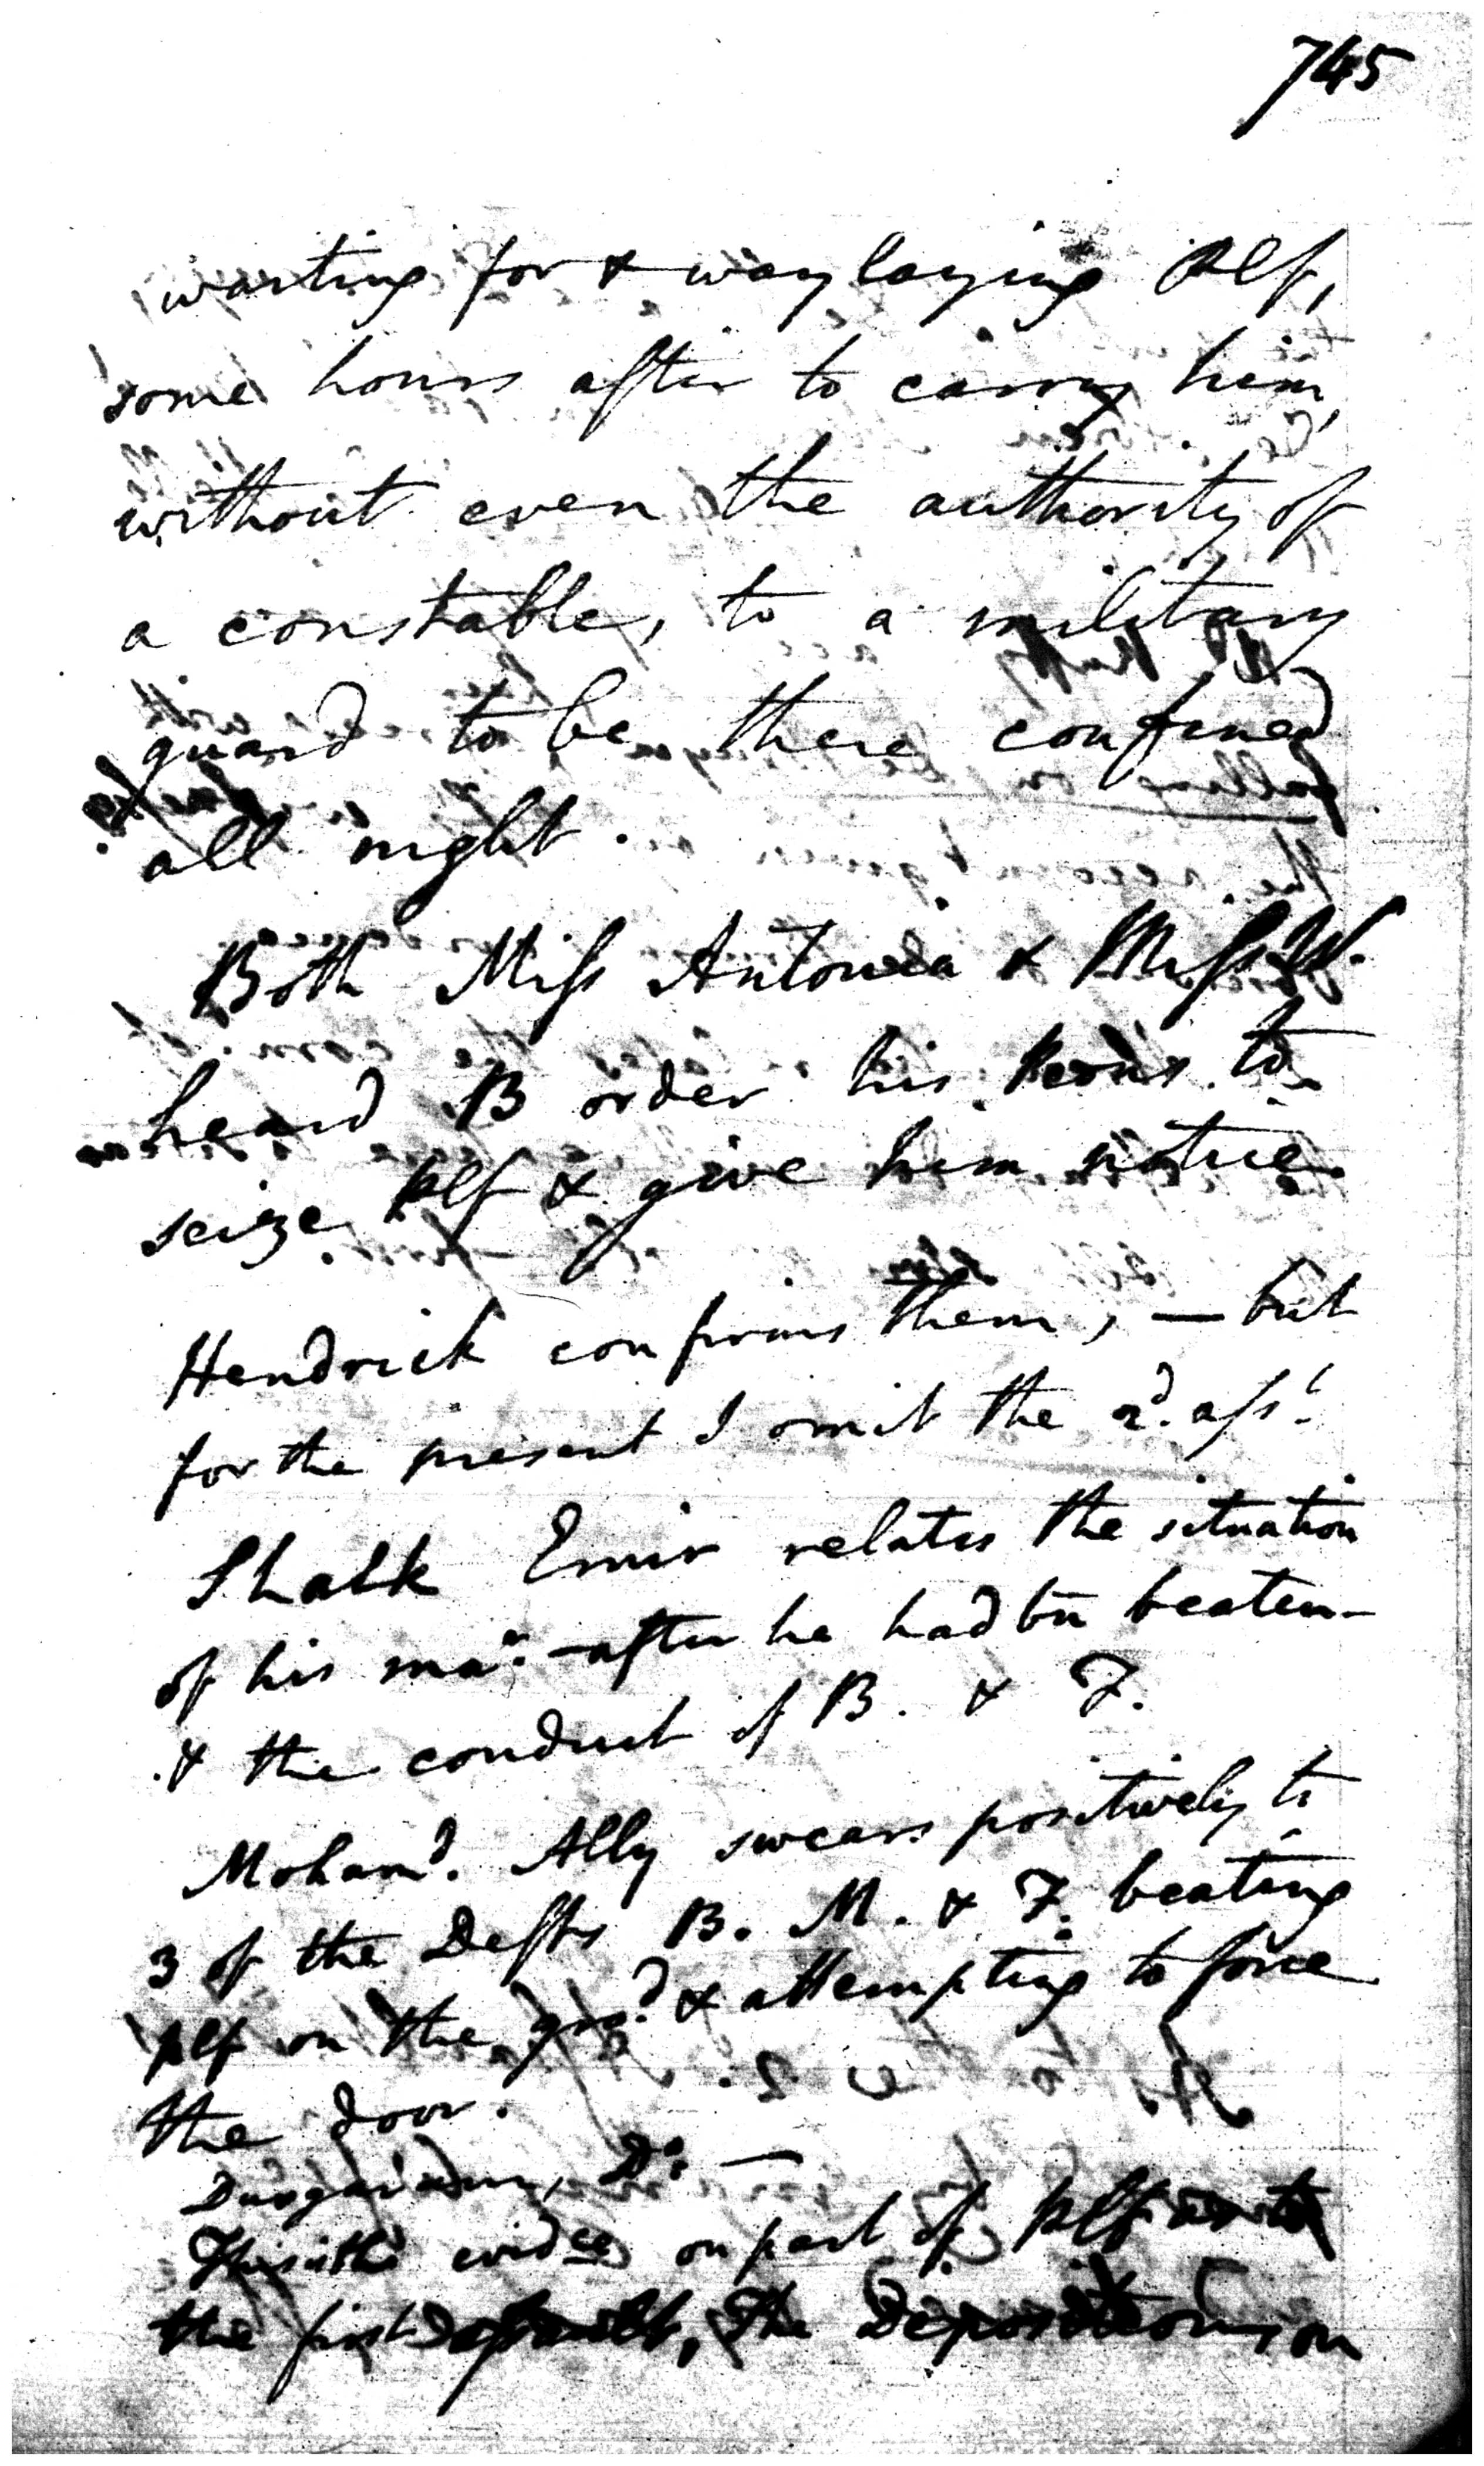 745
waiting for & waylaying Plf,
some hours after to carry him,
without even the authority of
a constable, to a military
guard to be there confined
all night.
Both Miss Antonia & Miss W.
heard B order his Peons to
seize Plf & give him notice
Hendrick confirms them, — but
for the present I omit the 2d. asst.
Shaik Emir relates the situation
of his mar. — after he had bn beaten —
& the conduct of B. & F.
Mohamd. Ally swears positively to
3 of the Defts B. M. & F. beating
plf on the grod. & attempting to force
the door.
Do. —
This is the evidce on part of Plf as to
the first assault, The Depositions on